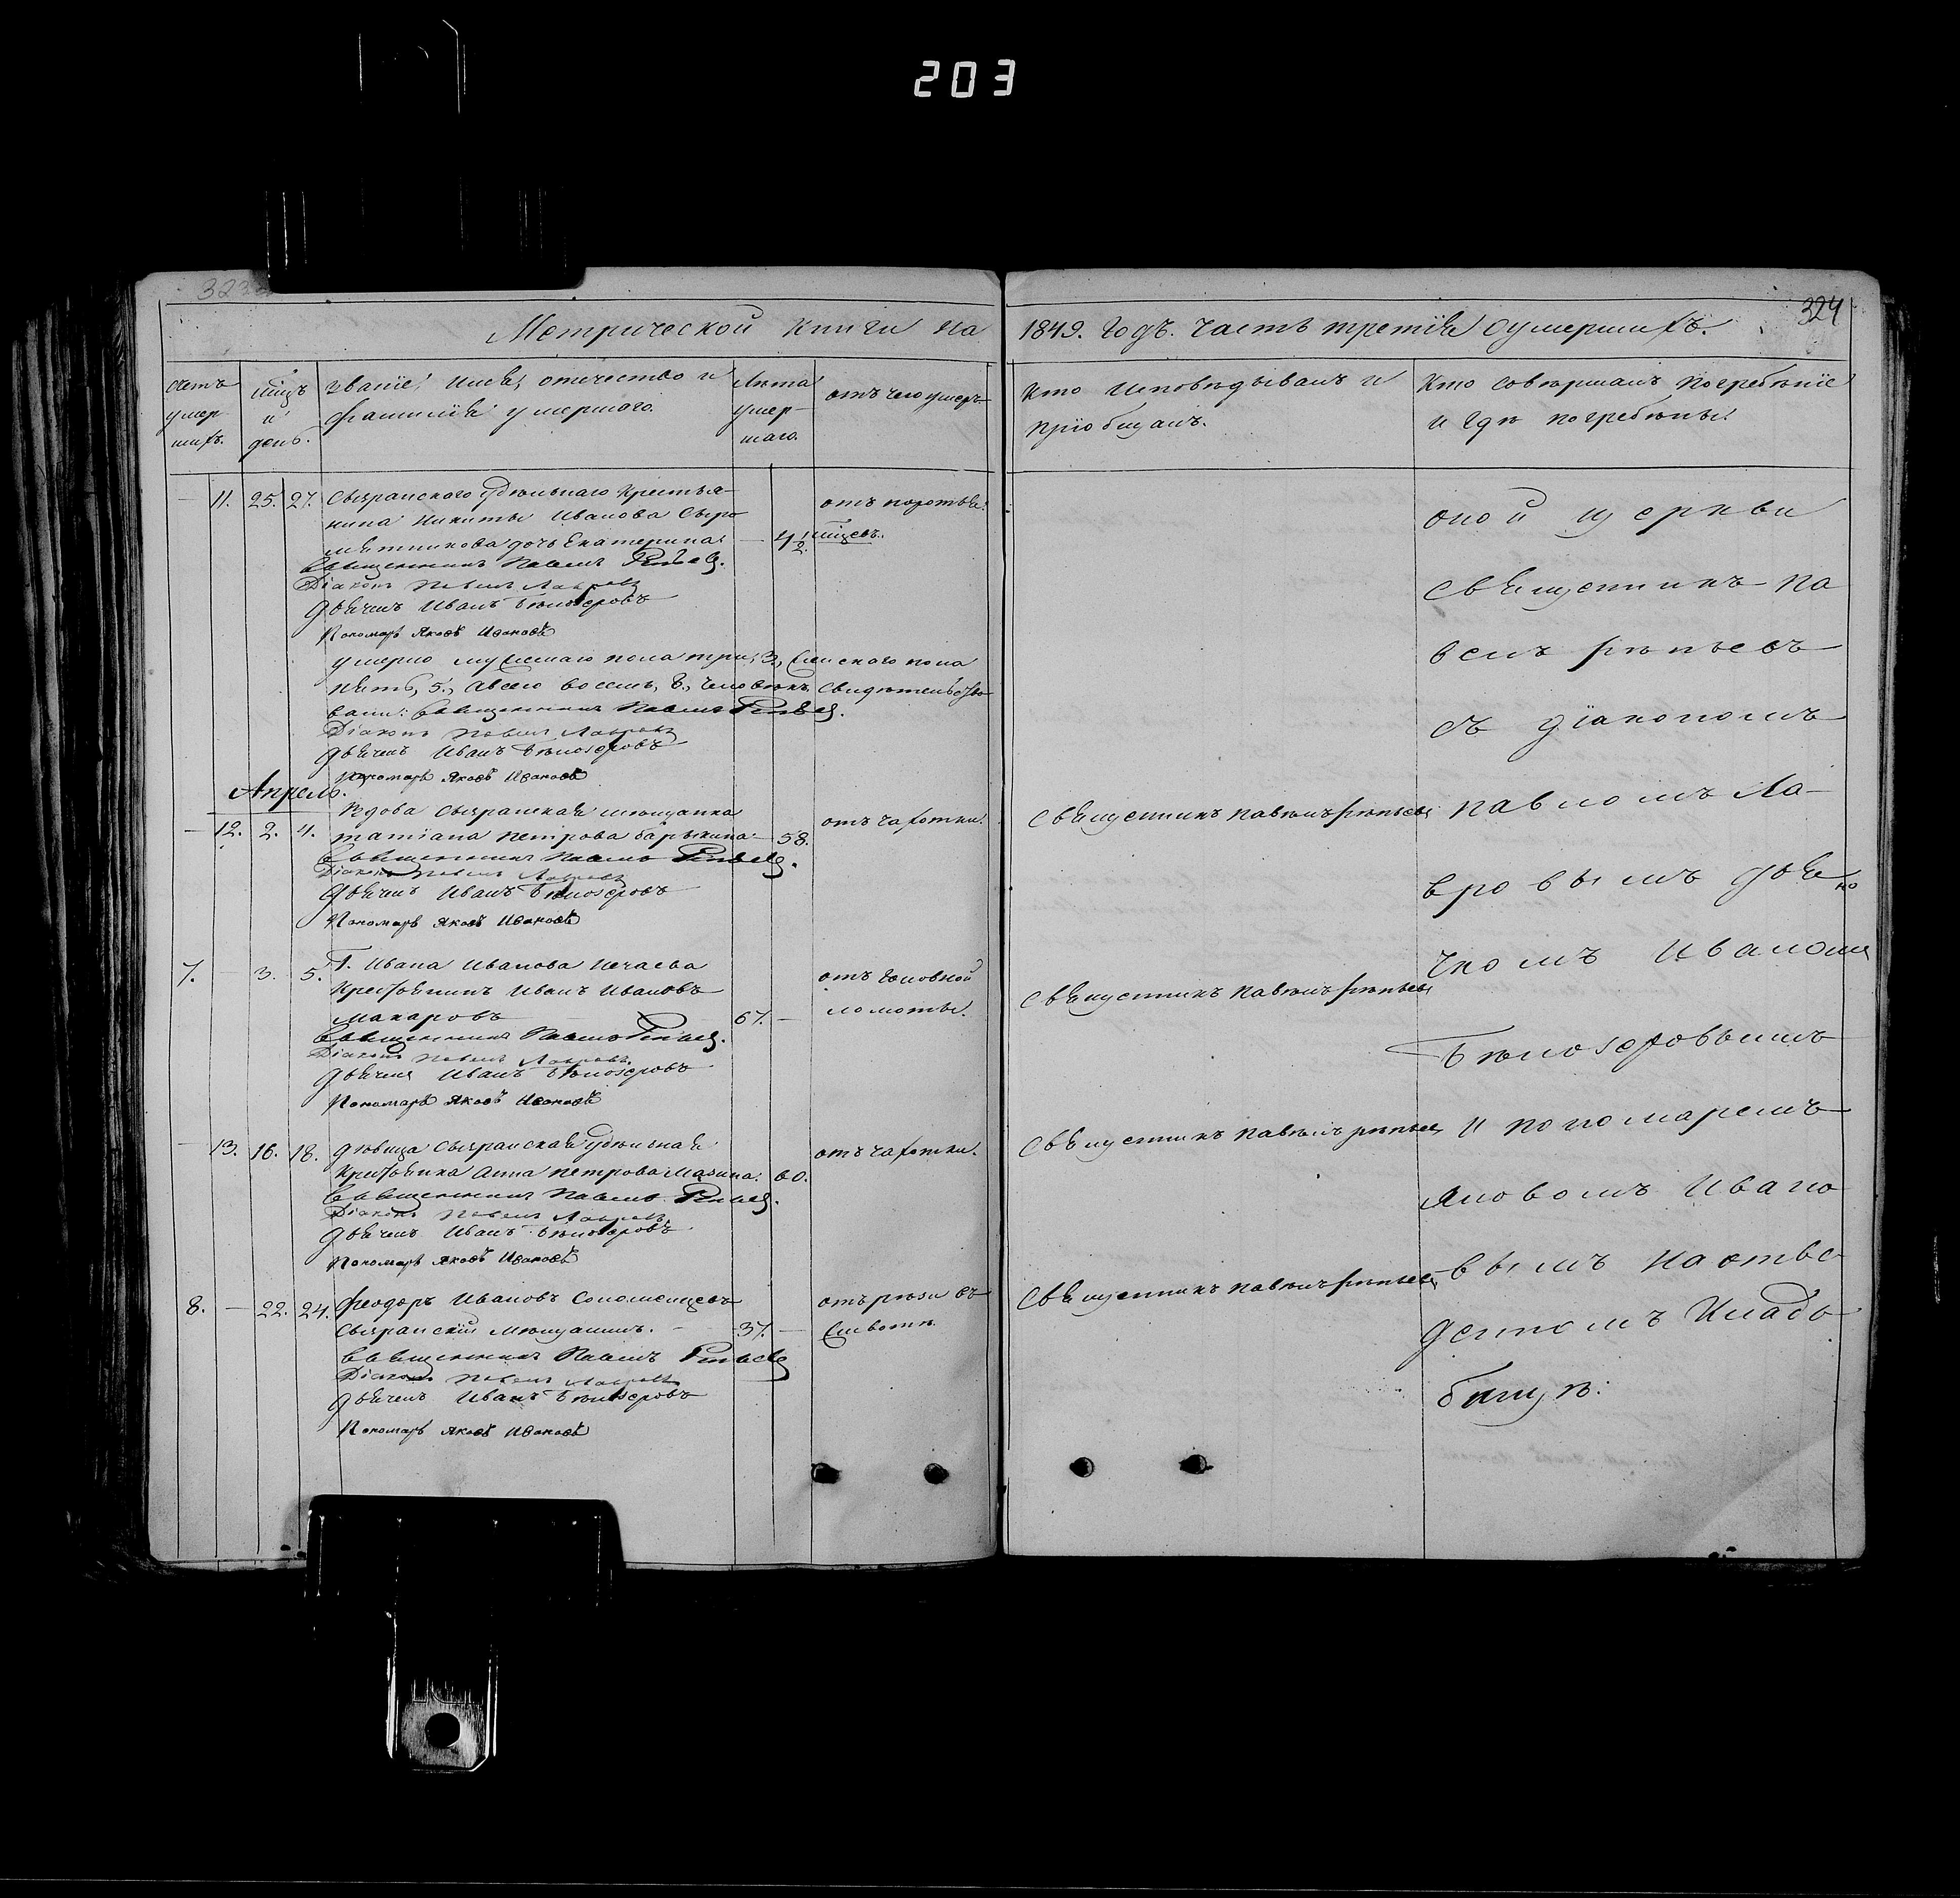 203
324
Метрической книги на 1849. Годъ. Часть третія о умершихъ.
счетъ умер- шихъ.
мѣсяцъ и день.
званіе, имя, отчество и
фамилія умершаго.
Лѣта
умер-
шаго.
отъ чего умеръ
Кто исповѣдывалъ и
пріобщалъ.
Кто совершалъ погребеніе
и гдѣ погребены.
11. 25. 27. Сызранского удѣльнаго крестья-
нина Никиты Иванова Сыро
мятникова дочь Екатерина 4 1/2
отъ коротья.
мѣсяцевъ.
Священникъ Павелъ
Діаконъ Павелъ Лавровъ
Дьячекъ Иванъ Бѣлозеровъ
Пономарь Яковъ Ивановъ
умерло мужескаго пола три, 3, женского пола
пять, 5., а всего восемь, 8., человѣкъ. Свидѣтельство-
вали: Священникъ Павелъ
Діаконъ Павелъ Лавровъ
Дьячекъ Иванъ Бѣлозеровъ
Пономарь Яковъ Ивановъ
Апрель.
12. 2. 4. Вдова Сызранская мѣщанка
Татіана Петрова Барыкина 58.
отъ чахотки.
Священникъ Павелъ
Священникъ Павелъ
Діаконъ Павелъ Лавровъ
Дьячекъ Иванъ Бѣлозеровъ
Пономарь Яковъ Ивановъ
7. 3. 5. Г. Ивана Иванова Нечаева
крестьянинъ Иванъ Ивановъ
Макаровъ 67.
отъ головной
ломоты.
Священникъ Павелъ
Священникъ Павелъ
Діаконъ Павелъ Лавровъ
Дьячекъ Иванъ Бѣлозеровъ
Пономарь Яковъ Ивановъ
13. 16. 18. дѣвица Сызранская удѣльная
крестьянка Анна Петрова Мазина. 60.
отъ чахотки.
Священникъ Павелъ
Священникъ Павелъ
Діаконъ Павелъ Лавровъ
Дьячекъ Иванъ Бѣлозеровъ
Пономарь Яковъ Ивановъ
8. 22. 24. Феодоръ Ивановъ
Сызранскій мѣщанинъ. 37.
отъ рези въ
животѣ.
Священникъ Павелъ
Священникъ Павелъ
Діаконъ Павелъ Лавровъ
Дьячекъ Иванъ Бѣлозеровъ
Пономарь Яковъ Ивановъ
оной церкви
священникъ Па
велъ
съ діакономъ
Павломъ Ла-
вровымъ дьяч
комъ Иваномъ
Бѣлозеровымъ
и пономаремъ
Яковомъ Ивано
вымъ на отве
денномъ кладо
бищѣ.